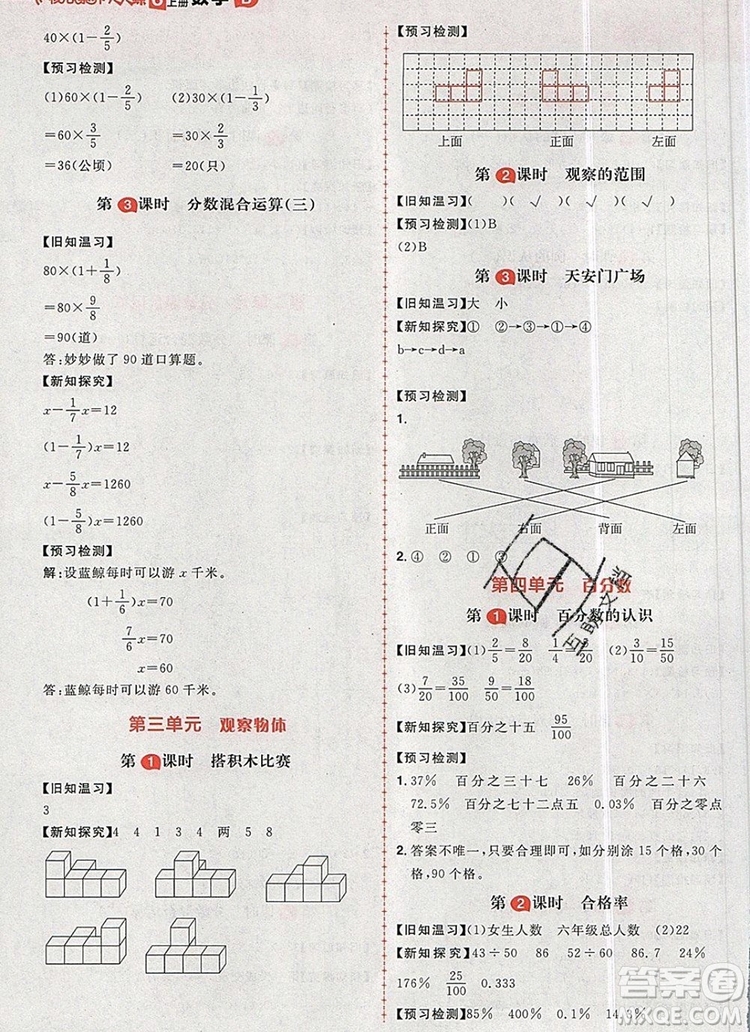 上册 数学
40×(1-2/5)
【预习检测】
(1)60×(1-2/5) (2)30×(1-1/3)
=60×3/5 =30×2/3
=36(公顷) =20(只)
第3课时 分数混合运算(三)
【旧知温习】
80×(1+1/8)
=80×9/8
=90(道)
答:妙妙做了 90 道口算题。
【新知探究】
x-1/7x=12
(1-1/7)x=12
x-5/8x=1260
(1-5/8)x=1260
【预习检测】
解:设蓝鲸每时可以游 x 千米。
(1+1/6)x=70
7/6x=70
x=60
答:蓝鲸每时可以游 60 千米。
第三单元 观察物体
第1课时 搭积木比赛
【旧知温习】
3
【新知探究】4 4 1 3 4 两 5 8
【预习检测】
上面 正面 左面
第2课时 观察的范围
【旧知温习】( )(√)(√)
【预习检测】(1)B
(2)B
第3课时 天安门广场
【旧知温习】大 小
【新知探究】① ②→③→①→④
b→c→d→a
【预习检测】
1.
正面 右面 背面 左面
2. ④ ② ① ③
第四单元 百分数
第1课时 百分数的认识
【旧知温习】(1)2/5=8/20 1/4=5/20 (2)3/10=15/50
(3)7/20=35/100 9/50=18/100
【新知探究】百分之十五 95/100
【预习检测】
1. 37% 百分之三十七 26% 百分之二十六
72.5% 百分之七十二点五 0.03% 百分之零点
零三
2. 答案不唯一,只要合理即可,如分别涂 15 个格,30 个
格,90 个格。
第2课时 合格率
【旧知温习】(1)女生人数 六年级总人数 (2)22
【新知探究】43÷50 86 52÷60 86.7 24%
176% 25/100 0.333
【预习检测】85% 400% 0.1% 14.3%
答案圈
MXQE.COM